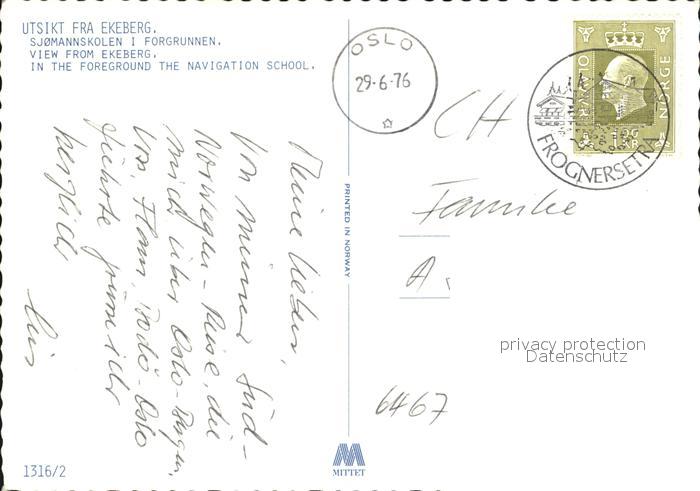 UTSIKT FRA EKEBERG.
SJØMANNSKOLEN I FORGRUNNEN.
VIEW FROM EKEBERG.
IN THE FOREGROUND THE NAVIGATION SCHOOL.
OSLO
29-6-76
NORGE
FROGNERSETRA
CH
Familie
A.
6467
privacy protection
Datenschutz
PRINTED IN NORWAY
Meine Lieben,
Von meiner Süd-
Norwegen-Reise, die
mich über Oslo-Bergen,
Voss, Flam, Bodö-Oslo
führte grüsse ich
herzlich
1316/2
MITTET